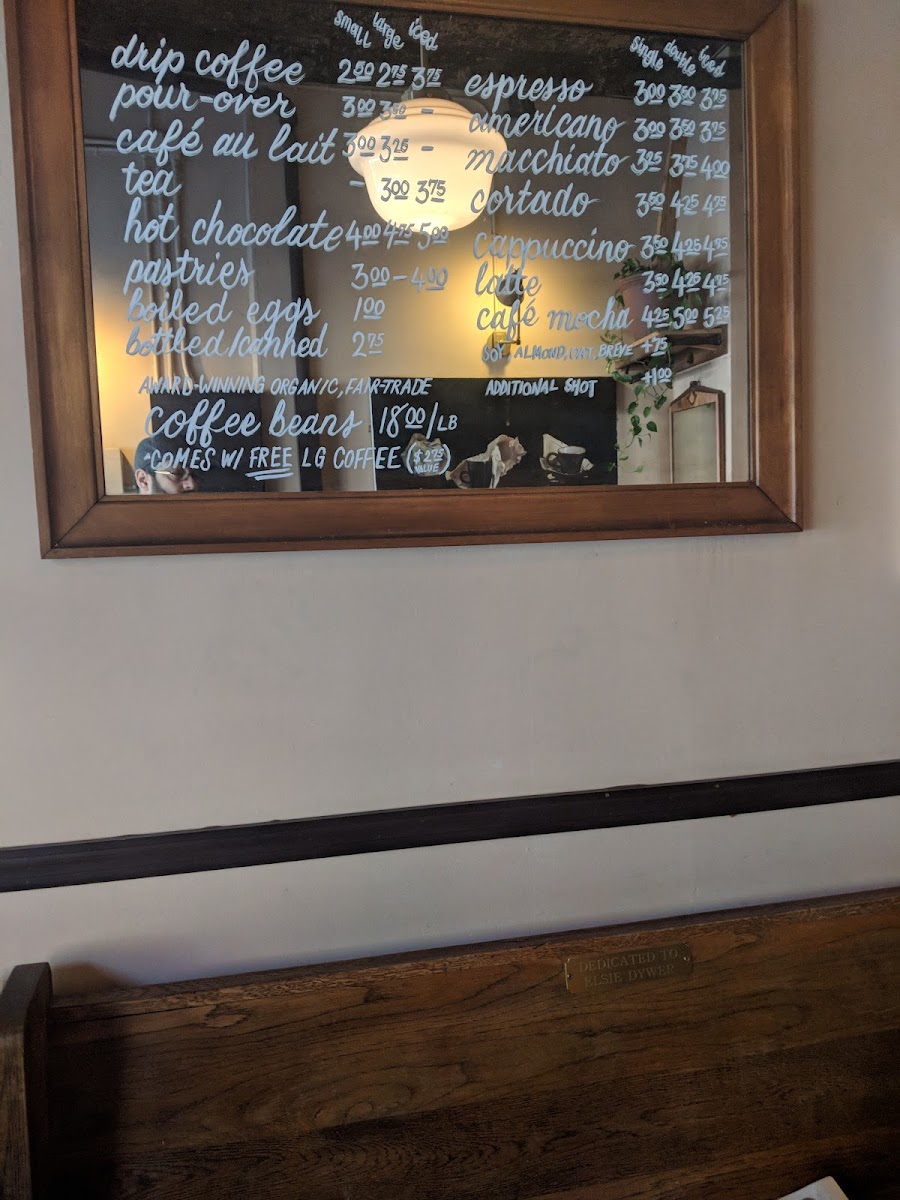 small large iced
drip coffee 2.50 2.75 3.75
pour-over 3.00 3.50 -
café au lait 3.00 3.25 -
tea - 3.00 3.75
hot chocolate 4.00 4.75 5.00
pastries 3.00 - 4.00
boiled eggs 1.00
bottled/canned 2.75
AWARD-WINNING ORGANIC, FAIR-TRADE
coffee beans 18.00/LB
*COMES W/ FREE LG COFFEE ($2.75 VALUE)
single double iced
espresso 3.00 3.50 3.75
americano 3.00 3.50 3.75
macchiato 3.25 3.75 4.00
cortado 3.50 4.25 4.75
cappuccino 3.50 4.25 4.75
latte 3.50 4.25 4.75
café mocha 4.25 5.00 5.25
SOY, ALMOND, OAT, BREVE +.75
ADDITIONAL SHOT +1.00
DEDICATED TO
ELSIE DYWER